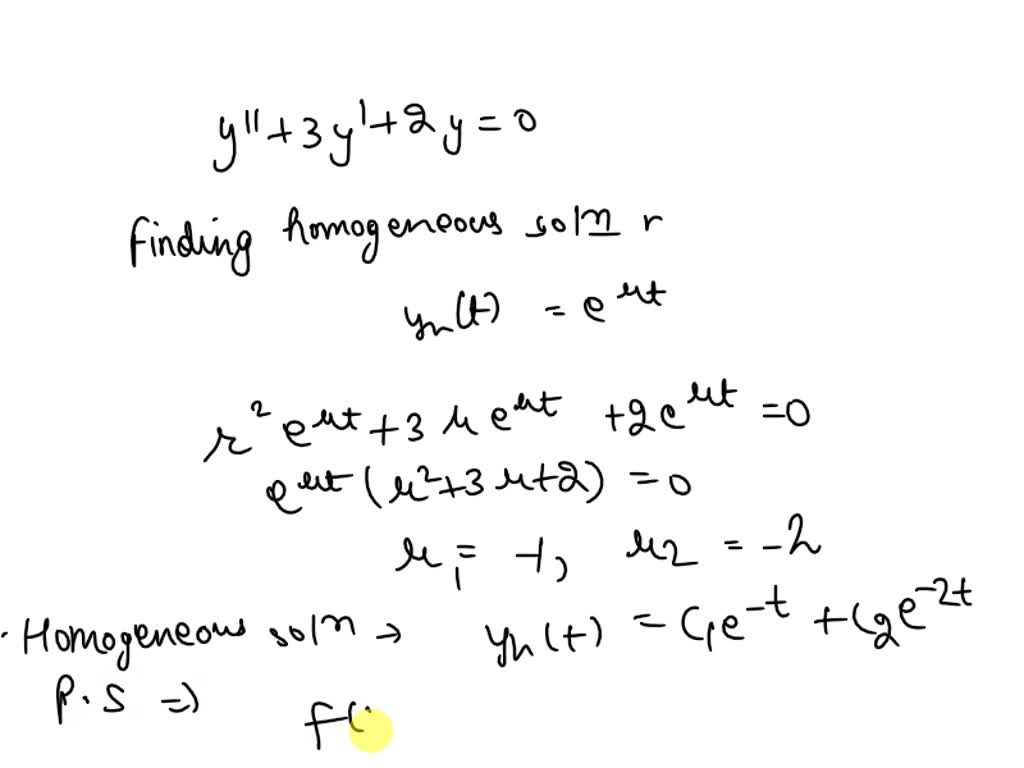 y'' + 3y' + 2y = 0
finding homogeneous soln r
yh(t) = e^rt
r² e^rt + 3 r e^rt + 2e^rt = 0
e^rt (r² + 3r + 2) = 0
r₁ = -1, r₂ = -2
· Homogeneous soln → yh(t) = C₁e^-t + C₂e^-2t
P.S ⇒ f(